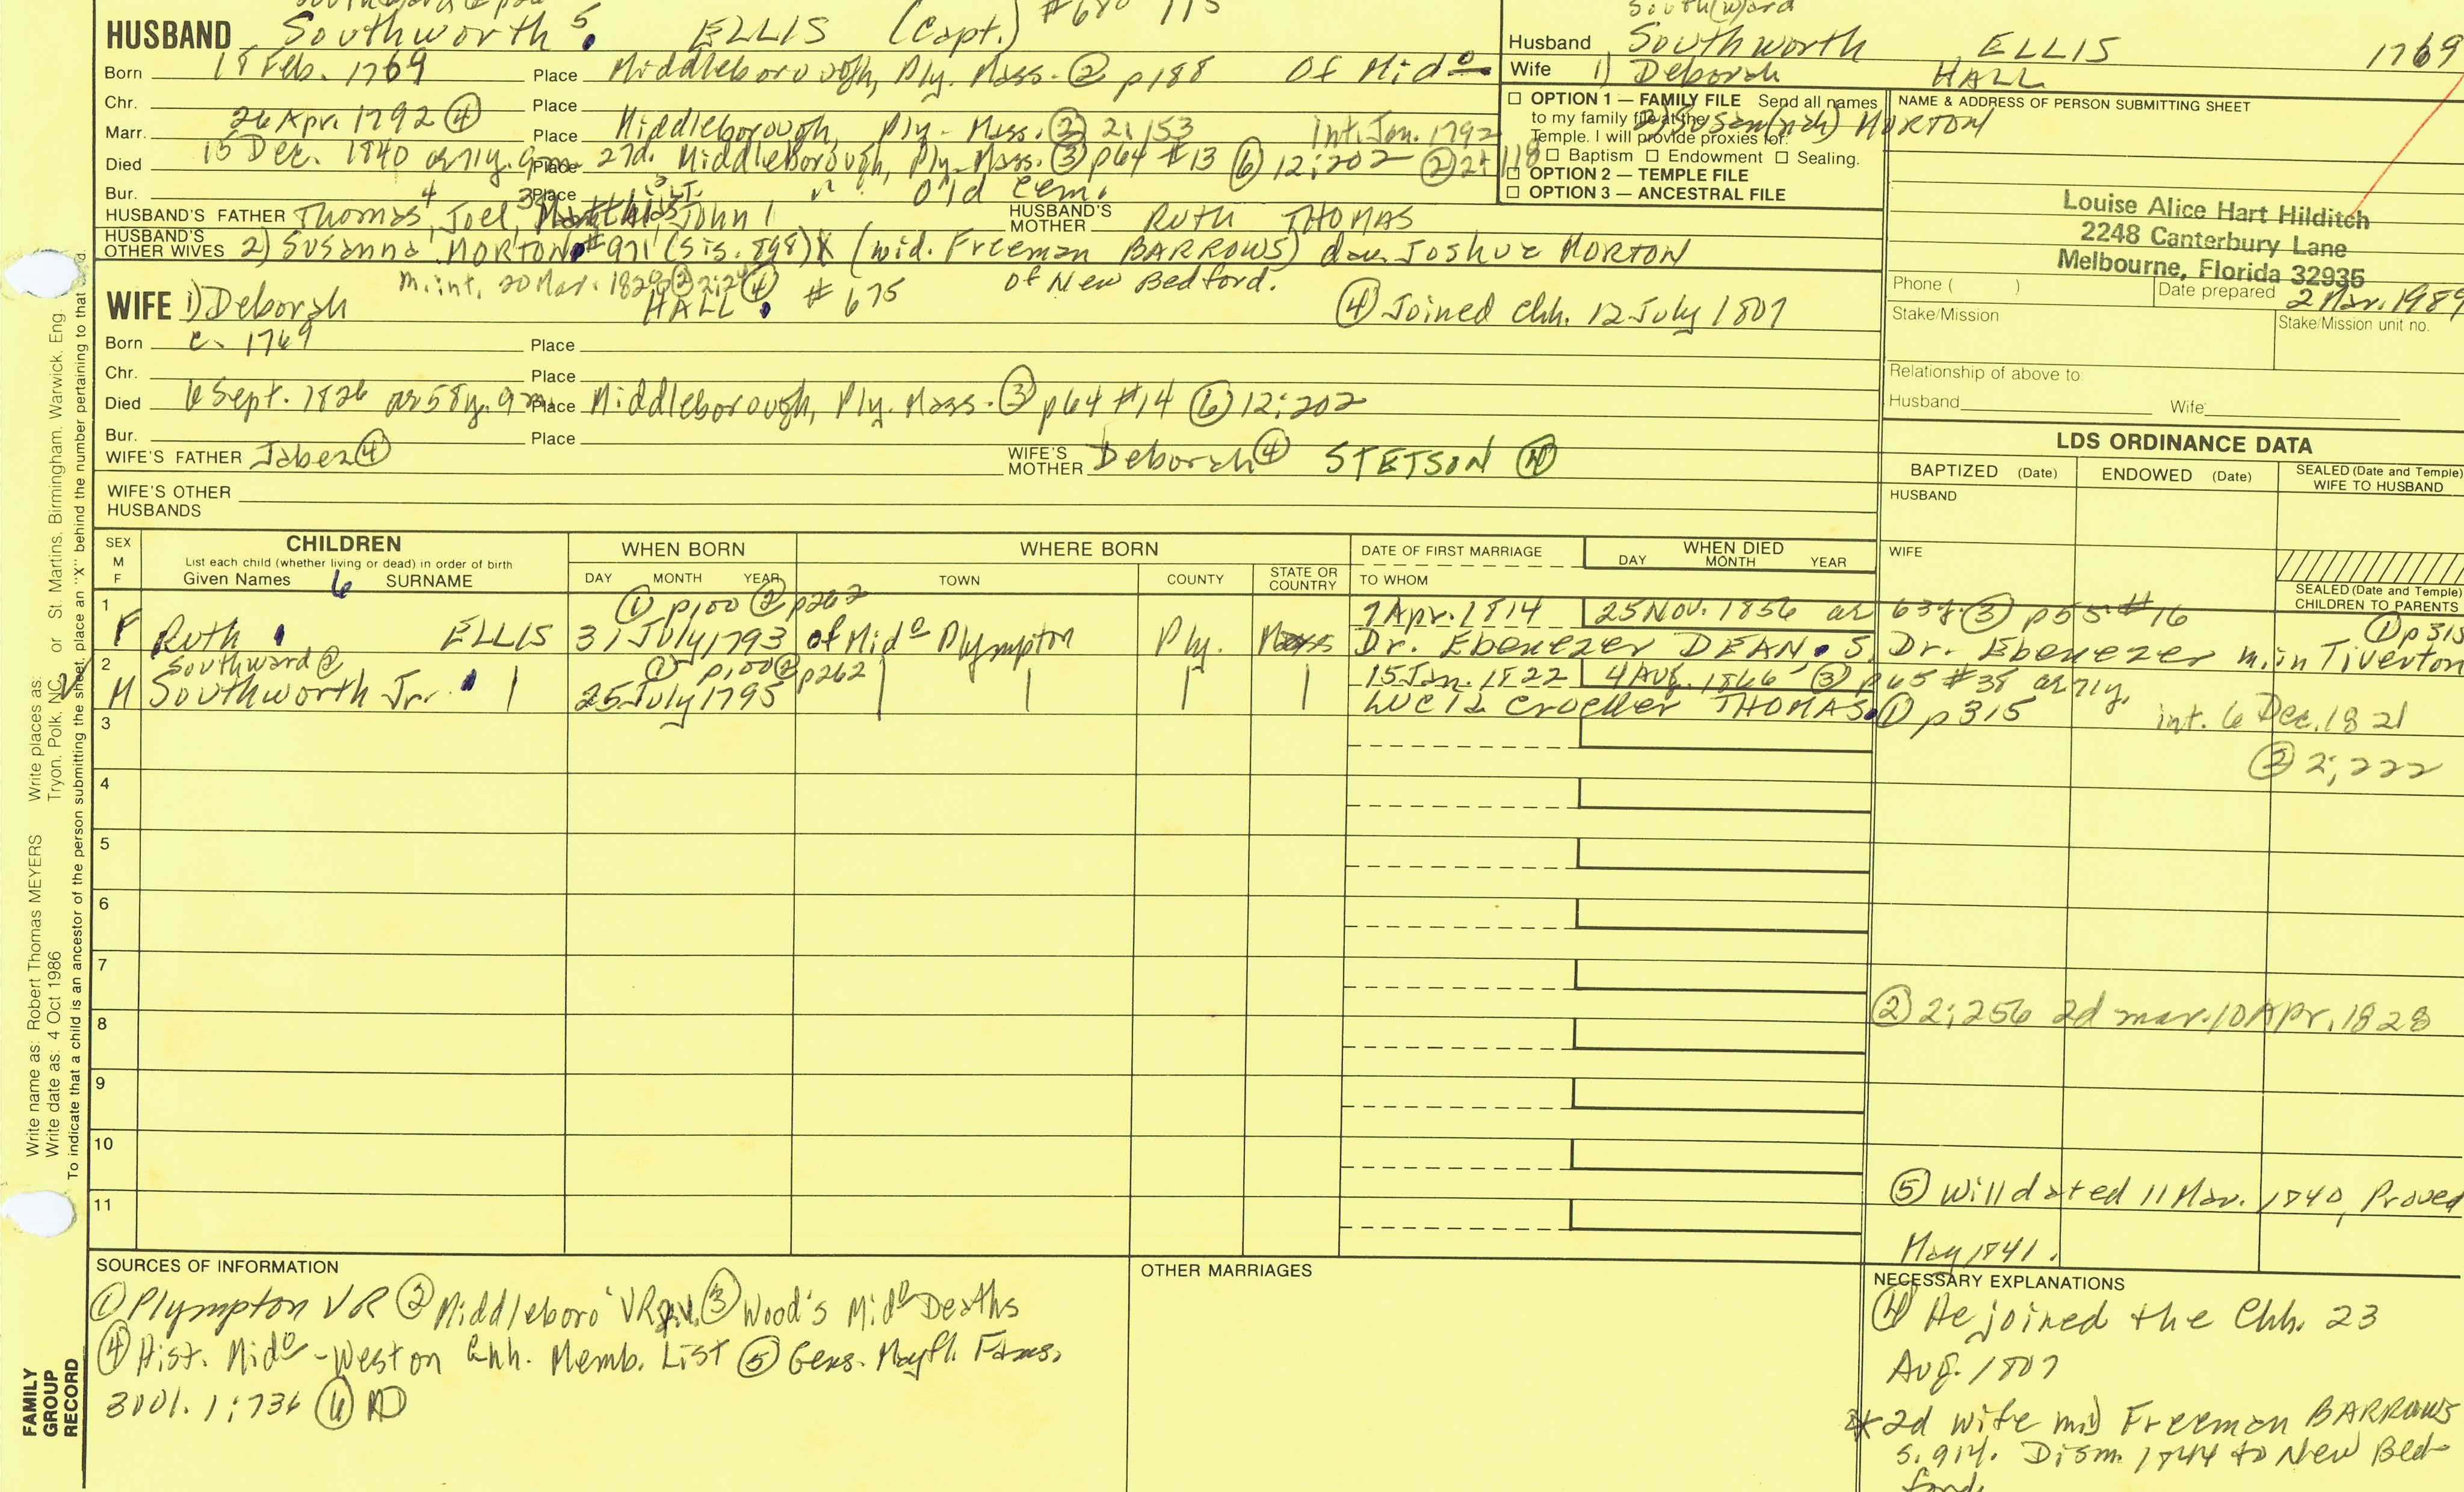 HUSBAND Southworth 5 ELLIS (Capt.)
Born 18 Feb. 1769 Place Middleborough, Ply. Mass. ② p188 Of Mido
Chr. Place
Marr. 26 Apr. 1792 ④ Place Middleborough, Ply-Mass. ② 2:153 Int. Jan. 1792
Died 15 Dec. 1840 ae 71y. 9m 27d. Place Middleborough, Ply-Mass. ③ p64 #13 ⑥ 12:202 ② 2: 118
Bur. Place Old Cem.
HUSBAND'S FATHER Thomas 4, Joel 3, John 1 HUSBAND'S MOTHER Ruth THOMAS
HUSBAND'S OTHER WIVES 2) Susanna MORTON #971 (sis. 898) X (wid. Freeman BARROWS) dau. Joshua MORTON
m. int. 20 Mar. ④ of New Bedford.
WIFE 1) Deborah HALL #675 ④ Joined Chh. 12 July 1807
Born c. 1769 Place
Chr. Place
Died 6 Sept. 1826 ae 58y. 9m. Place Middleborough, Ply. Mass. ③ p64 #14 ⑥ 12:202
Bur. Place
WIFE'S FATHER Jabez ④ WIFE'S MOTHER Deborah ④ STETSON ④
WIFE'S OTHER HUSBANDS
South(w)ard
Husband Southworth ELLIS 1769
Wife 1) Deborah HALL
2) Susan(nah) MORTON
☐ OPTION 1 — FAMILY FILE Send all names
to my family file at the
Temple. I will provide proxies for:
☐ Baptism ☐ Endowment ☐ Sealing.
☐ OPTION 2 — TEMPLE FILE
☐ OPTION 3 — ANCESTRAL FILE
NAME & ADDRESS OF PERSON SUBMITTING SHEET
Louise Alice Hart Hilditch
2248 Canterbury Lane
Melbourne, Florida 32935
Phone ( ) Date prepared 2 Mar. 1989
Stake/Mission Stake/Mission unit no.
Relationship of above to:
Husband Wife
LDS ORDINANCE DATA
BAPTIZED (Date) ENDOWED (Date) SEALED (Date and Temple) WIFE TO HUSBAND
HUSBAND
WIFE
SEALED (Date and Temple) CHILDREN TO PARENTS
SEX M F
CHILDREN
List each child (whether living or dead) in order of birth
Given Names 6 SURNAME
WHEN BORN
DAY MONTH YEAR
WHERE BORN
TOWN COUNTY STATE OR COUNTRY
DATE OF FIRST MARRIAGE
TO WHOM
WHEN DIED
DAY MONTH YEAR
1 ① p100 ② p262 7 Apr. 1814 25 Nov. 1856 ae 63y. ③ p55 #16 ① p315
F Ruth ELLIS 31 July 1793 of Mido Plympton Ply. Mass Dr. Ebenezer DEAN S. Dr. Ebenezer m. in Tiverton
2 Southward ② ① p100 ② p262 15 Jan. 1822 4 Aug. 1866 ③ p65 #38 ae 71y.
M Southworth Jr. 25 July 1795 Lucia Crocker THOMAS ① p315 int. 6 Dec. 1821
3 ② 2:222
4
5
6
7
8 ② 2:256 2d mar. 10 Apr. 1828
9
10
11 ⑤ Will dated 11 Mar. 1840, Proved
May 1841.
SOURCES OF INFORMATION
① Plympton VR ② Middleboro' VR ③ Wood's Mido Deaths
④ Hist. Mido - Weston Chh. Memb. List ⑤ Gens. Mayfl. Fams.
3vol. 1:736 ⑥ MD
OTHER MARRIAGES
NECESSARY EXPLANATIONS
④ He joined the Chh. 23
Aug. 1807
* 2d wife m1) Freeman BARROWS
s. 914. Dism. 1844 to New Bed-
ford.
Write name as: Robert Thomas MEYERS Write places as: Tryon, Polk, NC or St. Martins, Birmingham, Warwick, Eng
Write date as: 4 Oct 1986
To indicate that a child is an ancestor of the person submitting the sheet, place an "X" behind the number pertaining to that
FAMILY
GROUP
RECORD